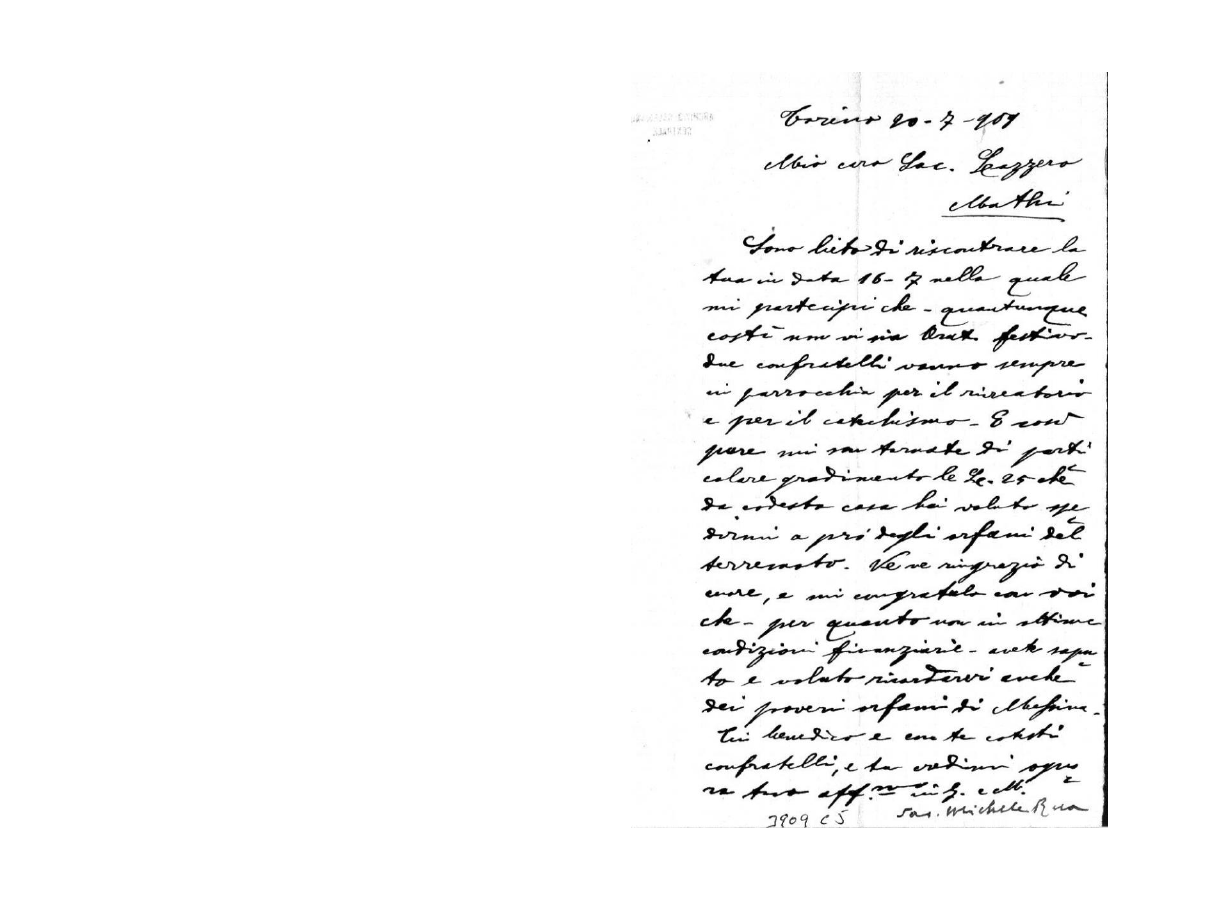 Torino 20-7-909
Mio caro Sac. Lazzero
Mathi
Sono lieto di riscontrare la
tua in data 16-7 nella quale
mi partecipi che - quantunque
costì non vi sia Orat. festivo -
due confratelli vanno sempre
in parrocchia per il ricreatorio
e per il catechismo - E
pure mi son tornate di parti
colare gradimento le L. 25 che
da codesta casa hai voluto spe
dirmi a pro' degli orfani del
terremoto. Ve ne ringrazio di
cuore, e mi congratulo con voi
che - per quanto non in ottime
condizioni finanziarie - avete sapu
to e voluto ricordarvi anche
dei poveri orfani di Messina -
Ti benedico e con te cotesti
confratelli, e tu credimi ogno
ra tuo aff.mo in G. e M.
Sac. Michele Rua
3909 C 5